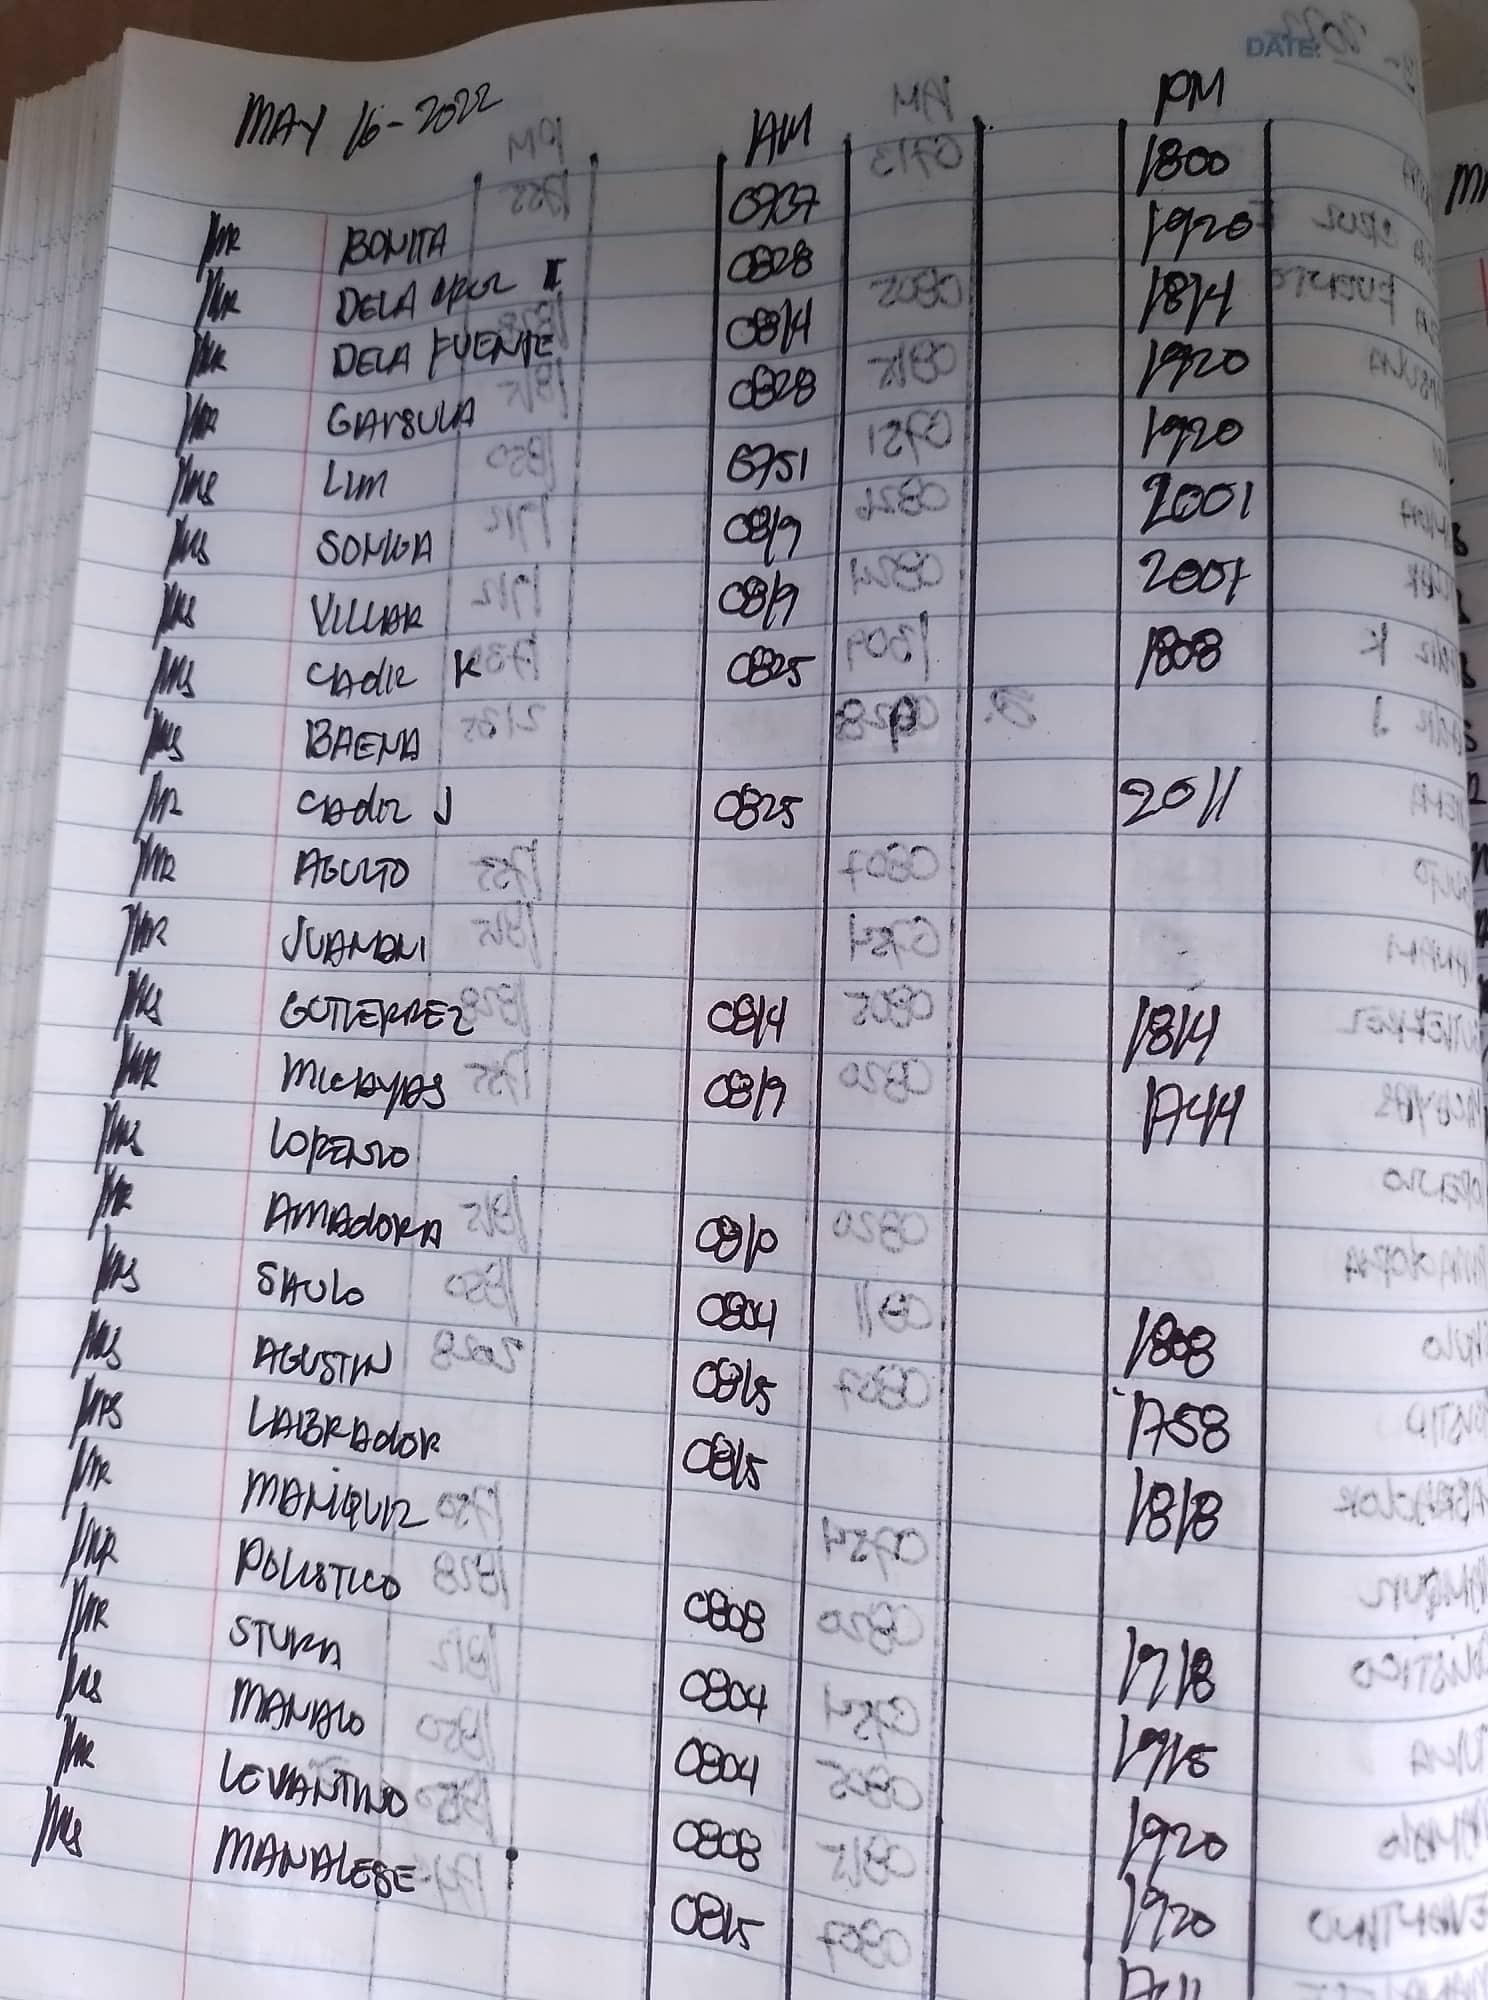 DATE:
MAY 16-2022 AM PM
MR BONITA 0737 1800
MR DELA CRUZ II 0828 1920
MR DELA FUENTE 0814 1814
MR GARSULA 0828 1920
MS LIM 0751 1920
MS SONIGA 0819 2001
MS VILLAR 0819 2001
MS CADIZ K 0825 1808
MS BAENA
MR CADIZ J 0825 2011
MR AGULTO
MR JUANANI
MS GUTIERREZ 0814 1814
MR MICAYAS 0819 1744
MS LORENZO
MR AMADORA 0810
MS SAULO 0804 1808
MS AGUSTIN 0815 1758
MRS LABRADOR 0815 1818
MR MANIQUIZ
MR POLISTICO 0808 1718
MR STUKA 0804 1915
MS MANALO 0804 1920
MR LEVANTINO 0808 1920
MS MANALESE 0815